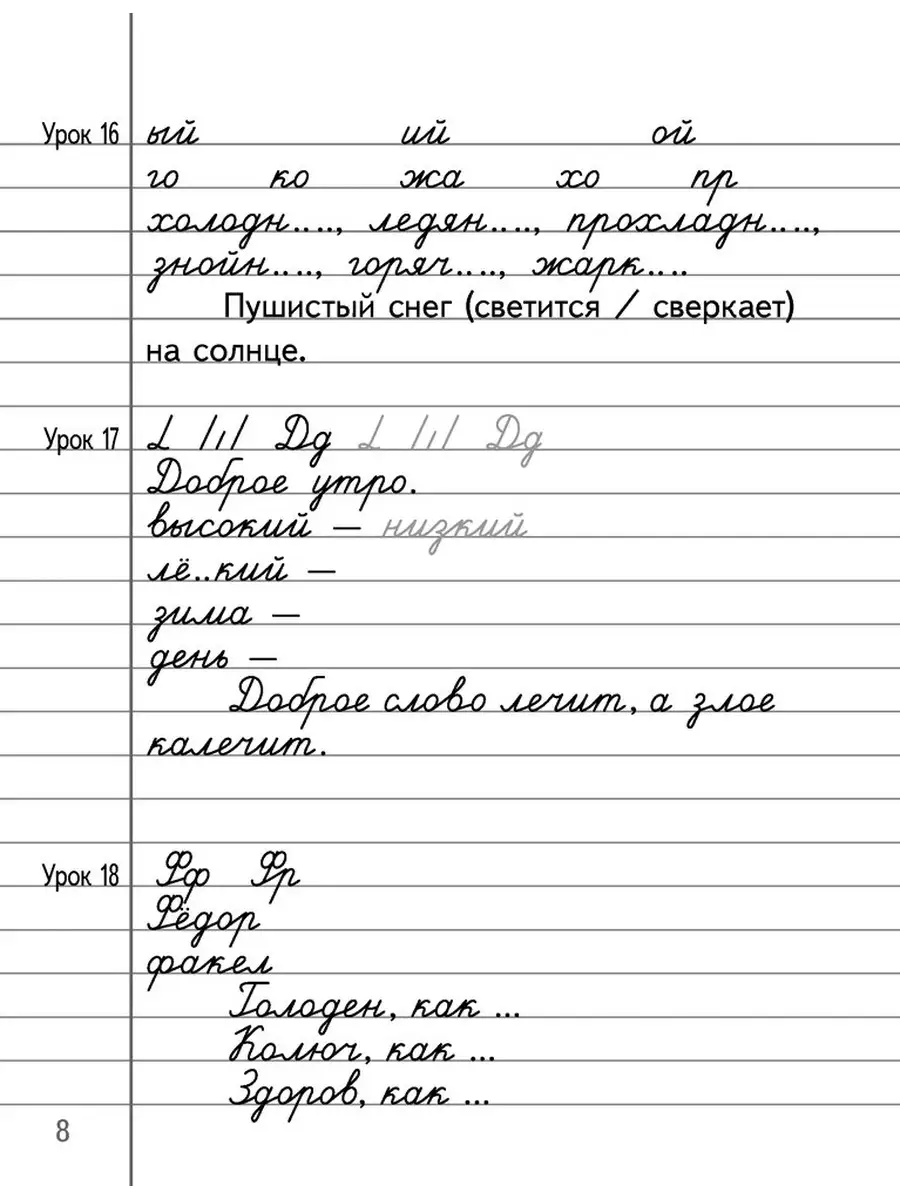 Урок 16 ый ий ой
го ко жа хо пр
холодн...., ледян...., прохладн....,
знойн...., горяч...., жарк....
Пушистый снег (светится / сверкает)
на солнце.
Урок 17 Дд Дд
Доброе утро.
высокий – низкий
лё..кий –
зима –
день –
Доброе слово лечит, а злое
калечит.
Урок 18 Фф Фр
Фёдор
факел
Голоден, как ...
Колюч, как ...
Здоров, как ...
8